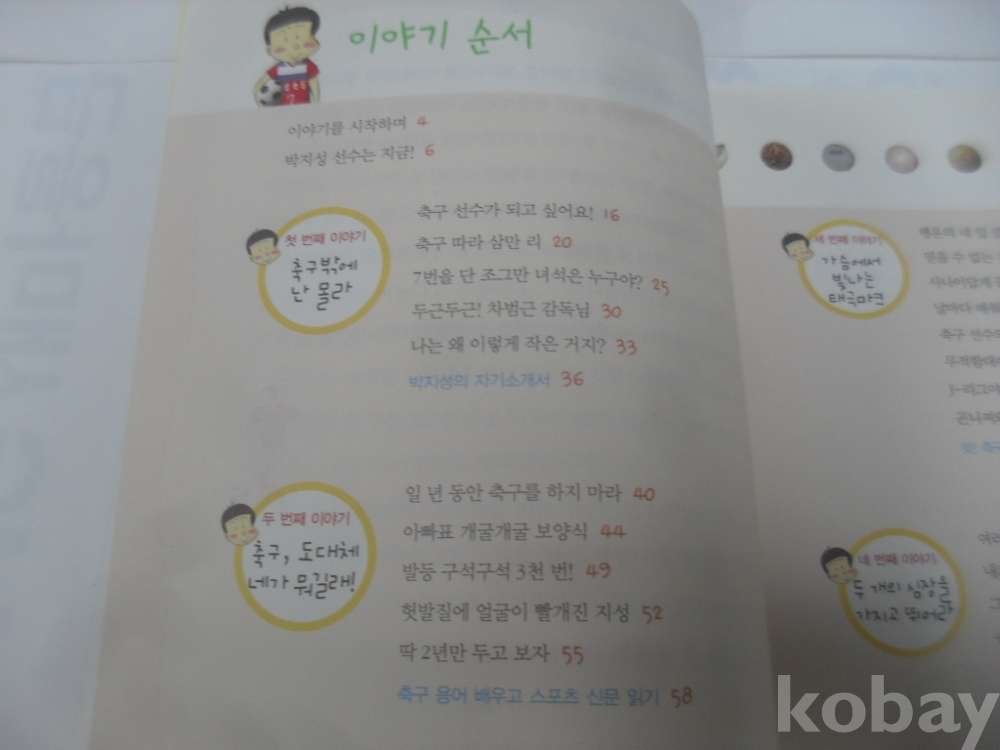 이야기 순서
이야기를 시작하며 4
박지성 선수는 지금! 6
첫 번째 이야기
축구밖에
난 몰라
축구 선수가 되고 싶어요! 16
축구 따라 삼만 리 20
7번을 단 조그만 녀석은 누구야? 25
두근두근! 차범근 감독님 30
나는 왜 이렇게 작은 거지? 33
박지성의 자기소개서 36
두 번째 이야기
축구, 도대체
네가 뭐길래!
일 년 동안 축구를 하지 마라 40
아빠표 개굴개굴 보양식 44
발등 구석구석 3천 번! 49
헛발질에 얼굴이 빨개진 지성 52
딱 2년만 두고 보자 55
축구 용어 배우고 스포츠 신문 읽기 58
세 번째 이야기
가슴에서
빛나는
태극마크
행운의 네 잎
믿을 수 없는
사나이답게
날마다 배워
축구 선수
무적함대
J-리그
네 번째 이야기
두 개의 심장을
가지고 뛰어라
kobay